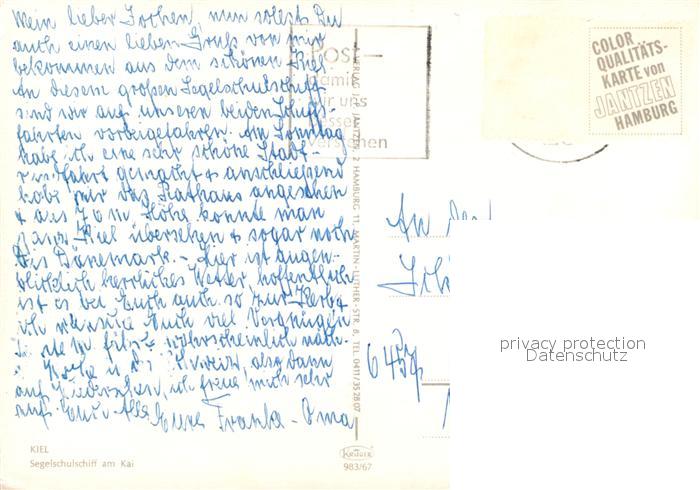 Mein lieber Jochen, nun sollst Du
auch einen lieben Gruß von mir
bekommen aus dem schönen Kiel.
An diesem großen Segelschulschiff
sind wir auf unseren beiden Schiffs-
fahrten vorbeigefahren. Am Sonntag
habe ich eine sehr schöne Stadt-
rundfahrt gemacht & anschließend
habe mir das Rathaus angesehen
& aus 70 m Höhe konnte man
ganz Kiel übersehen & sogar noch
bis Dänemark. - Hier ist augen-
blicklich herrliches Wetter, hoffentlich
ist es bei Euch auch so zur Herbst
ich wünsche Euch viel Vergnügen
wahrscheinlich näch-
Woche in die Schweiz, also dann
auf Wiedersehen, ich freue mich sehr
auf Euch Alle Eure Franka-Oma
Post-
damit
wir uns
besser
verstehen
VERLAG JANTZEN, 2 HAMBURG 11, MARTIN-LUTHER-STR. 8, TEL. 0411/35 28 07
COLOR
QUALITÄTS-
KARTE von
JANTZEN
HAMBURG
An
645
privacy protection
Datenschutz
KIEL
Segelschulschiff am Kai
KRÜGER
983/67